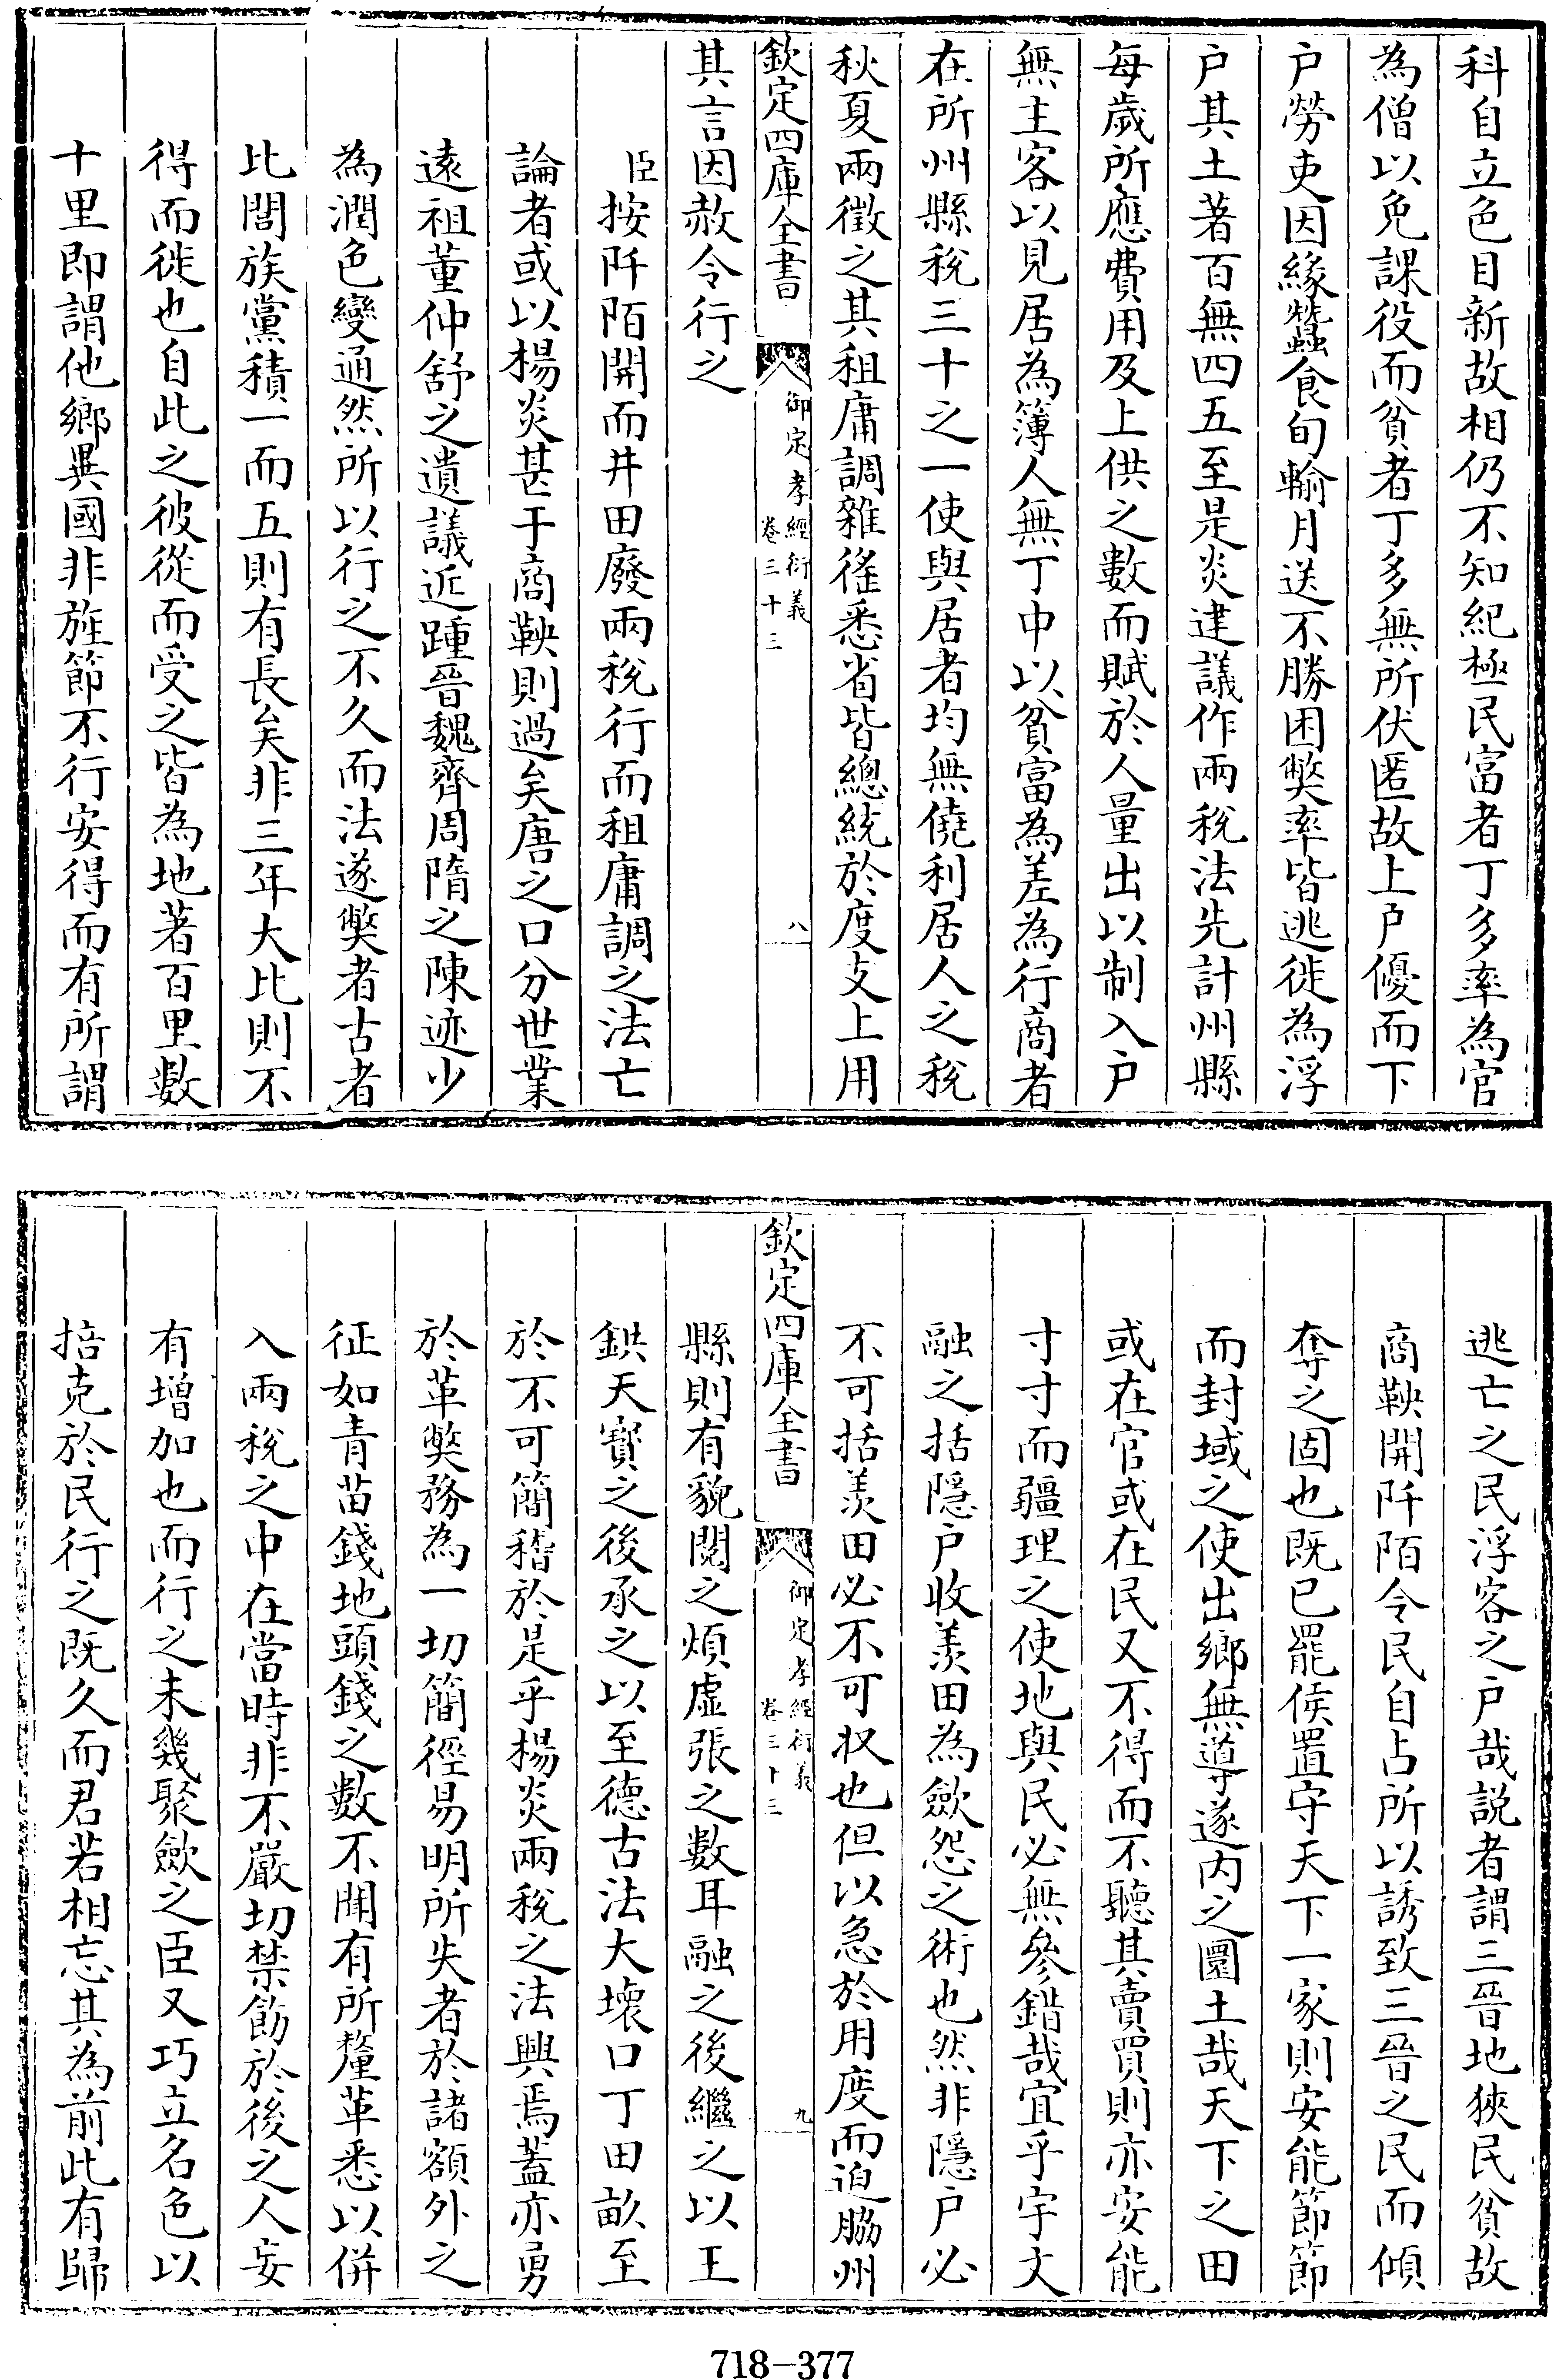 科自立色目新故相仍不知紀極民富者丁多率為官
為僧以免課役而貧者丁多無所伏匿故上戶優而下
戶勞吏因緣蠶食旬輸月送不勝困弊率皆逃徙為浮
戶其土著百無四五至是炎建議作兩稅法先計州縣
每歲所應費用及上供之數而賦於人量出以制入戶
無主客以見居為簿人無丁中以貧富為差為行商者
在所州縣稅三十之一使與居者均無僥利居人之稅
秋夏兩徵之其租庸調雜徭悉省皆總統於度支上用
欽定四庫全書
御定孝經衍義
卷三十三
八
其言因赦令行之
臣按阡陌開而井田廢兩稅行而租庸調之法亡
論者或以楊炎甚于商鞅則過矣唐之口分世業
遠祖董仲舒之遺議近踵晉魏齊周隋之陳迹少
為潤色變通然所以行之不久而法遂弊者古者
比閭族黨積一而五則有長矣非三年大比則不
得而徙也自此之彼從而受之皆為地著百里數
十里即謂他鄉異國非旌節不行安得而有所謂
逃亡之民浮客之戶哉説者謂三晉地狹民貧故
商鞅開阡陌令民自占所以誘致三晉之民而傾
奪之固也既已罷侯置守天下一家則安能節節
而封域之使出鄉無導遂內之圜土哉天下之田
或在官或在民又不得而不聽其賣買則亦安能
寸寸而疆理之使地與民必無參錯哉宜乎宇文
融之括隱戶收羨田為歛怨之術也然非隱戶必
不可括羨田必不可收也但以急於用度而迫脇州
欽定四庫全書
御定孝經衍義
卷三十三
九
縣則有貌閱之煩虛張之數耳融之後繼之以王
鉷天寳之後承之以至德古法大壞口丁田畝至
於不可簡稽於是乎楊炎兩稅之法興焉蓋亦勇
於革弊務為一切簡徑易明所失者於諸額外之
征如青苗錢地頭錢之數不聞有所釐革悉以併
入兩稅之中在當時非不嚴切禁飭於後之人妄
有增加也而行之未幾聚歛之臣又巧立名色以
掊克於民行之既久而君若相忘其為前此有歸
718-377